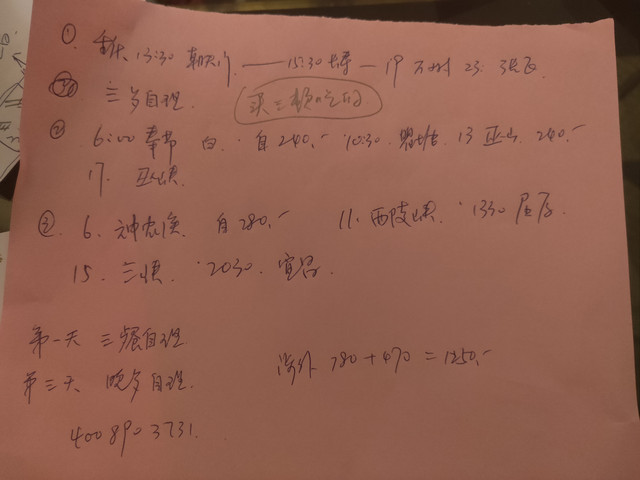 ① 重庆 13:30 朝天门 —— 15:30 长寿 — 19 万州 23: 张飞
三多自理. 买三顿吃的
② 6:00 奉节 白. 自 240.- 10:30. 13 巫山. 240.-
17. 巫峡.
③ 6. 神农溪 自 280.- 11. 西陵峡. 1330 屈原.
15. 三峡. 2030. 宜昌.
第一天 三餐自理.
第三天 晚多自理.
780+470=1250.-
400 890 3731.